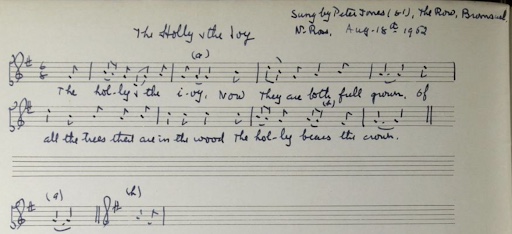 Sung by Peter Jones (81), The Row, Bromsash.
The Holly & the Ivy
Nr. Ross, Aug. 18th 1952
(a)
The hol-ly & the i-vy, Now They are both full grown. Of
(b)
all the trees that are in the wood The hol-ly bears the crown.
(a) (b)